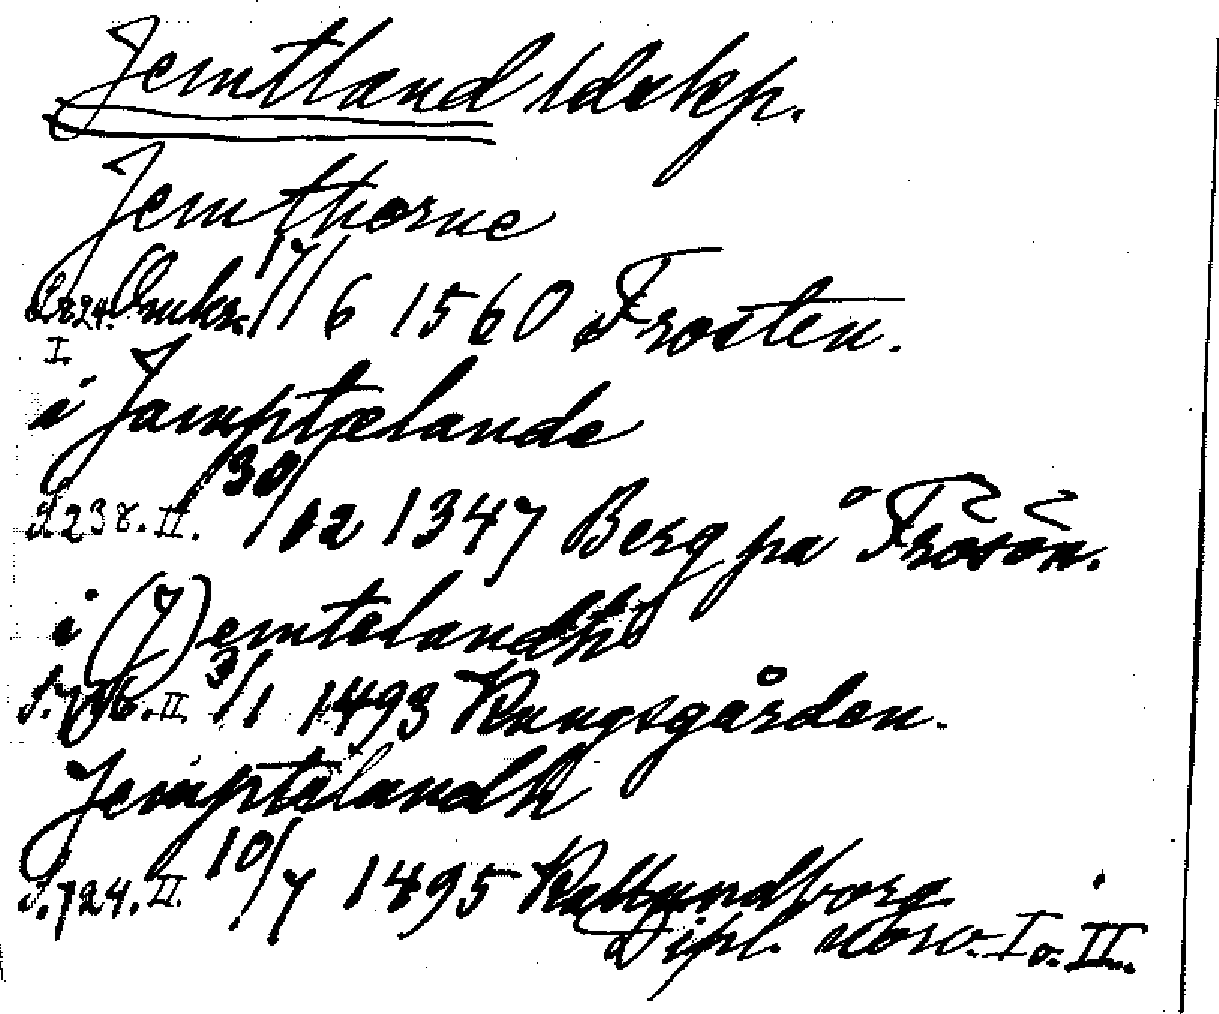 Jemtland ldskp.
Jemtherne
S. 824. Omkr. 17/6 1560 Frosten.
I.
i Jamptælande
S. 238. II. 30/12 1347 Berg på Frösön.
i (J)emtelandh
S. 736. II. 3/1 1493 Kungsgården.
Jemptelandh
S. 724. II. 10/7 1495 Kallundborg
Dipl. norv. I o. II.